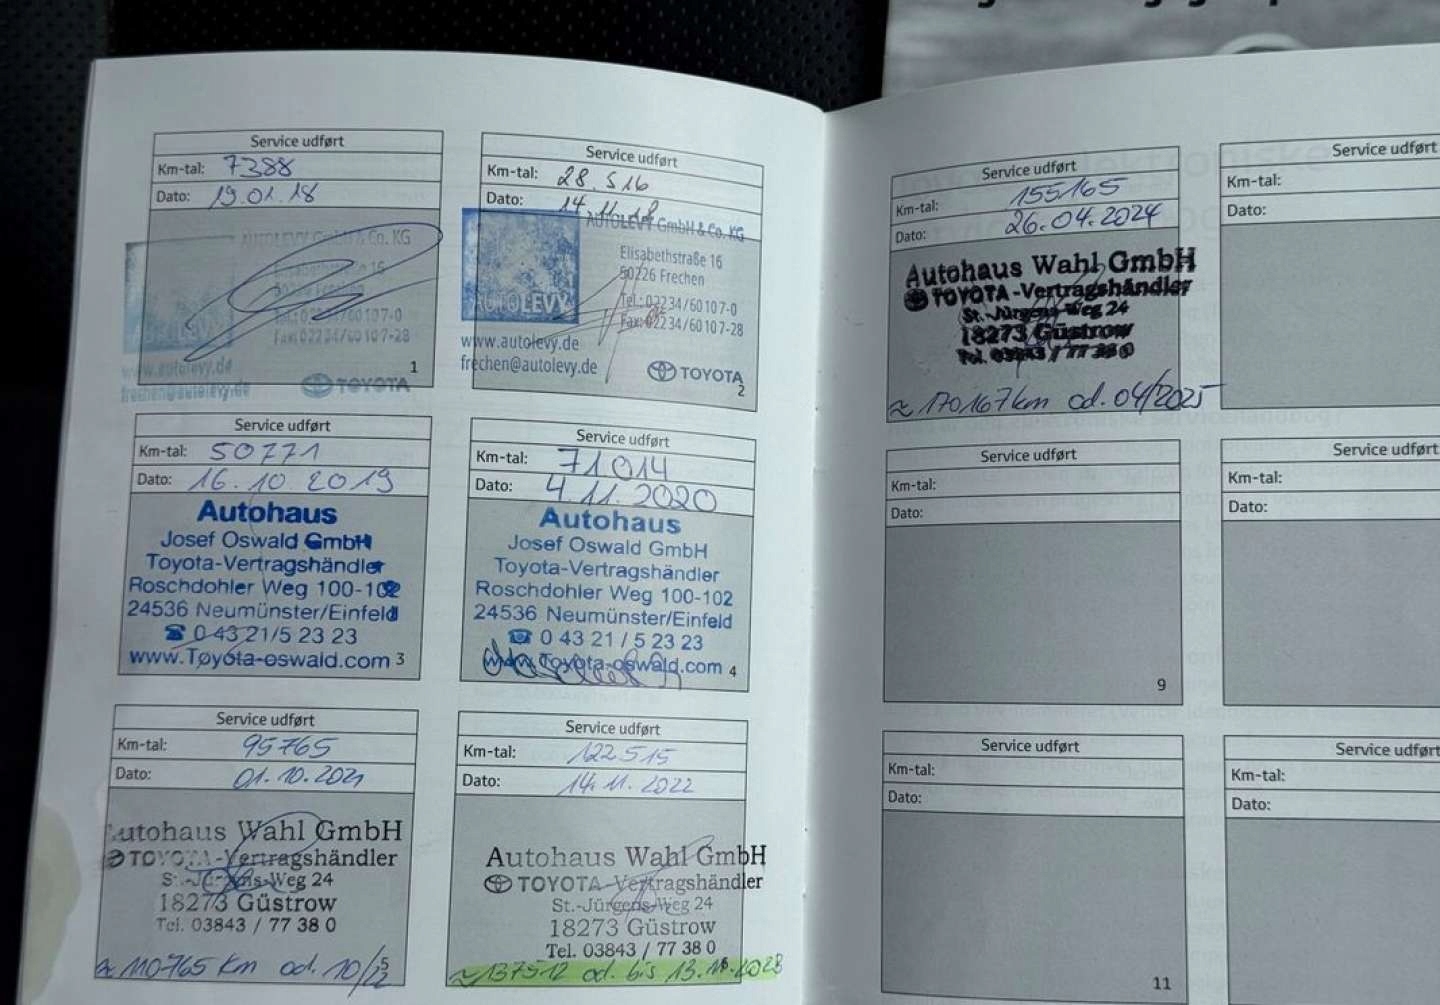 Service udført
Km-tal: 7388
Dato: 19.01.18
AUTOLEVY GmbH & Co. KG
Elisabethstraße 16
50226 Frechen
Tel.: 02234/60107-0
Fax: 02234/60107-28
www.autolevy.de
frechen@autolevy.de
TOYOTA
1
Service udført
Km-tal: 28.516
Dato: 14.11.18
AUTOLEVY GmbH & Co. KG
Elisabethstraße 16
50226 Frechen
AUTOLEVY
Tel.: 02234/60107-0
Fax: 02234/60107-28
www.autolevy.de
frechen@autolevy.de
TOYOTA
2
Service udført
Km-tal: 50771
Dato: 16.10.2019
Autohaus
Josef Oswald GmbH
Toyota-Vertragshändler
Roschdohler Weg 100-102
24536 Neumünster/Einfeld
☎ 0 43 21/5 23 23
www.Toyota-oswald.com 3
Service udført
Km-tal: 71014
Dato: 4.11.2020
Autohaus
Josef Oswald GmbH
Toyota-Vertragshändler
Roschdohler Weg 100-102
24536 Neumünster/Einfeld
☎ 0 43 21 / 5 23 23
www.Toyota-oswald.com 4
Service udført
Km-tal: 95765
Dato: 01.10.2021
Autohaus Wahl GmbH
TOYOTA-Vertragshändler
St.-Jürgens-Weg 24
18273 Güstrow
Tel. 03843 / 77 38 0
≈ 110765 km od. 10/22
5
Service udført
Km-tal: 122515
Dato: 14.11.2022
Autohaus Wahl GmbH
TOYOTA-Vertragshändler
St.-Jürgens-Weg 24
18273 Güstrow
Tel. 03843 / 77 38 0
≈ 137512 od. bis 13.11.2023
6
Service udført
Km-tal: 155165
Dato: 26.04.2024
Autohaus Wahl GmbH
TOYOTA-Vertragshändler
St.-Jürgens-Weg 24
18273 Güstrow
Tel. 03843 / 77 38 0
≈ 170167 km od. 04/2025
Service udført
Km-tal:
Dato:
Service udført
Km-tal:
Dato:
9
Service udført
Km-tal:
Dato:
Service udført
Km-tal:
Dato:
11
Service udført
Km-tal:
Dato: